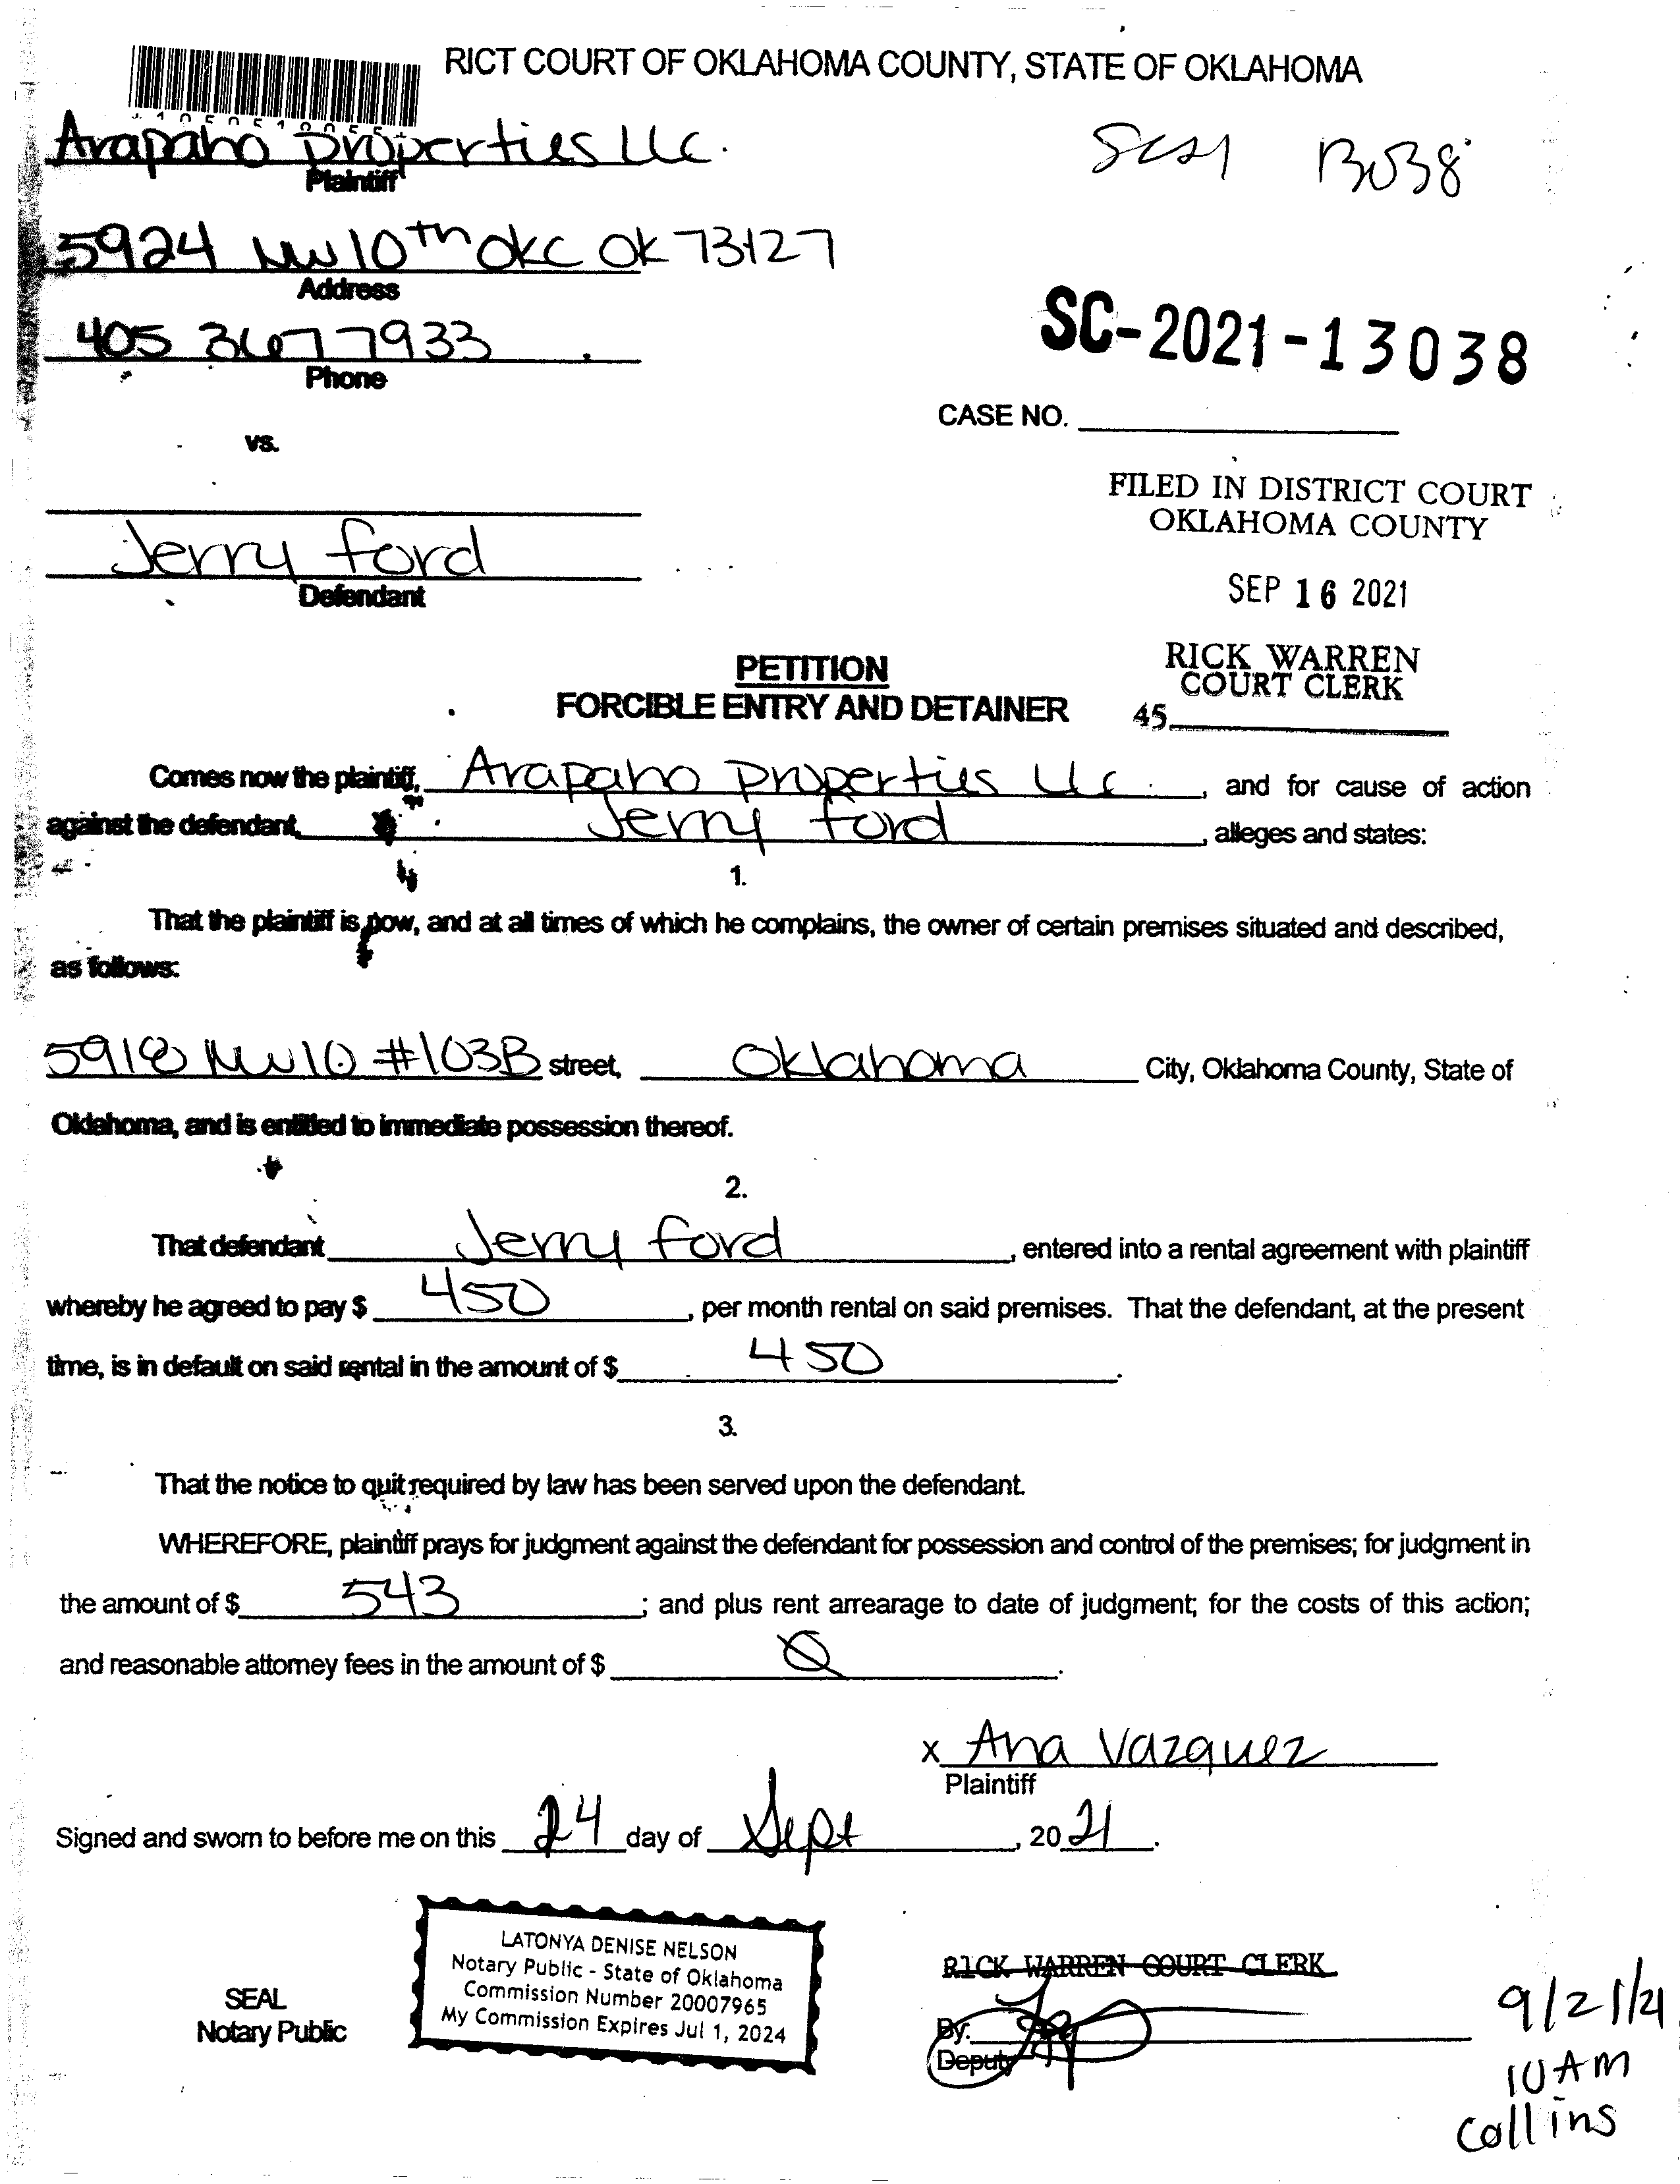 RICT COURT OF OKLAHOMA COUNTY, STATE OF OKLAHOMA
Arapaho Properties LLC.
Plaintiff
5924 NW 10th OKC OK 73127
Address
405 367 7933
Phone
vs.
Jerry Ford
Defendant
SC-2021-13038
CASE NO.
FILED IN DISTRICT COURT
OKLAHOMA COUNTY
SEP 16 2021
RICK WARREN
COURT CLERK
45
PETITION
FORCIBLE ENTRY AND DETAINER
Comes now the plaintiff, Arapaho Properties LLC. , and for cause of action
against the defendant, Jerry Ford , alleges and states:
1.
That the plaintiff is now, and at all times of which he complains, the owner of certain premises situated and described,
as follows:
5918 NW 10 #103B street, Oklahoma City, Oklahoma County, State of
Oklahoma, and is entitled to immediate possession thereof.
2.
That defendant Jerry Ford , entered into a rental agreement with plaintiff
whereby he agreed to pay $ 450 , per month rental on said premises. That the defendant, at the present
time, is in default on said rental in the amount of $ 450 .
3.
That the notice to quit required by law has been served upon the defendant.
WHEREFORE, plaintiff prays for judgment against the defendant for possession and control of the premises; for judgment in
the amount of $ 543 ; and plus rent arrearage to date of judgment; for the costs of this action;
and reasonable attorney fees in the amount of $ Ø .
x Ana Vazquez
Plaintiff
Signed and sworn to before me on this 24 day of Sept , 20 21 .
LATONYA DENISE NELSON
Notary Public - State of Oklahoma
Commission Number 20007965
My Commission Expires Jul 1, 2024
SEAL
Notary Public
RICK WARREN COURT CLERK
By:
Deputy
9/21/21
10 AM
Collins